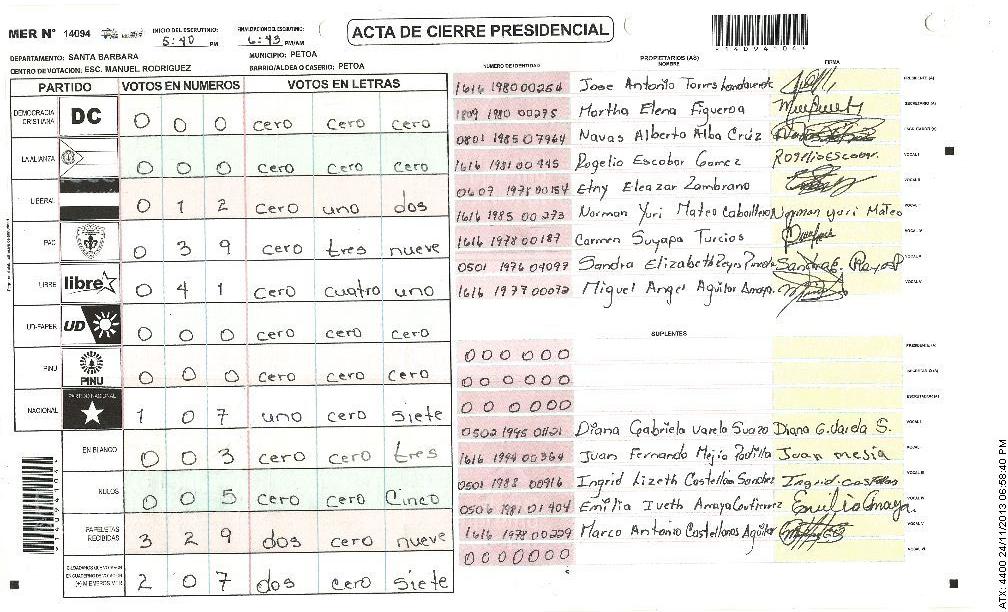 MER N° 14094
INICIO DEL ESCRUTINIO: 5:40 PM
FINALIZACION DEL ESCRUTINIO: 6:43 PM/AM
ACTA DE CIERRE PRESIDENCIAL
DEPARTAMENTO: SANTA BARBARA MUNICIPIO: PETOA
CENTRO DE VOTACION: ESC. MANUEL RODRIGUEZ BARRIO/ALDEA O CASERIO: PETOA
PARTIDO VOTOS EN NUMEROS VOTOS EN LETRAS
DEMOCRACIA CRISTIANA DC 0 0 0 cero cero cero
LA ALIANZA 0 0 0 cero cero cero
LIBERAL 0 1 2 cero uno dos
PAC 0 3 9 cero tres nueve
LIBRE libre 0 4 1 cero cuatro uno
UD-FAPER UD 0 0 0 cero cero cero
PINU PINU 0 0 0 cero cero cero
NACIONAL PARTIDO NACIONAL 1 0 7 uno cero siete
EN BLANCO 0 0 3 cero cero tres
NULOS 0 0 5 cero cero Cinco
PAPELETAS RECIBIDAS 3 2 9 dos cero nueve
2 0 7 dos cero siete
NUMERO DE IDENTIDAD PROPIETARIOS (AS) NOMBRE FIRMA
1616 1980 00254 Jose Antonio Torres PRESIDENTE (A)
1809 1980 00275 Martha Elena Figueroa SECRETARIO (A)
0801 1985 07964 Navas Alberto Alba Cruz ESCRUTADOR (A)
1616 1981 00445 Rogelio Escobar Gomez Rogelio Escobar. VOCAL I
0607 1978 00154 Etny Eleazar Zambrano VOCAL II
1616 1985 00273 Norman Yuri Mateo Caballero Norman yuri Mateo
1616 1978 00187 Carmen Suyapa Turcios VOCAL IV
0501 1976 04097 Sandra Elizabeth Reyes Sandra E. Reyes P VOCAL V
1616 1977 00072 Miguel Angel Aguilar Amaya.
SUPLENTES
000 000 PRESIDENTE (A)
000 000 SECRETARIO (A)
00 0000 ESCRUTADOR (A)
0502 1995 01121 Diana Gabriela Varela Suazo Diana G. Varela S. VOCAL I
1616 1994 00364 Juan Fernando Mejia Padilla Juan mesia
0501 1988 00916 Ingrid Lizeth Castellon Sanchez Ingrid. VOCAL III
0506 1981 01404 Emilia Iveth Amaya Gutierrez Emilia Amaya. VOCAL IV
1616 1978 00209 Marco Antonio Castellanos Aguilar VOCAL V
0000000 VOCAL VI
ATX: 4400 24/11/2013 06:58:40 PM